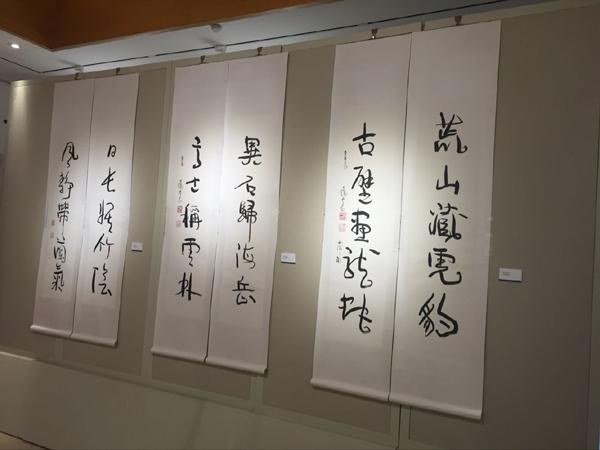 荒山藏虎豹
古壁畫龍蛇
異石歸海岳
高士稱雲林
日長娛竹陰
風靜帶蘭氣